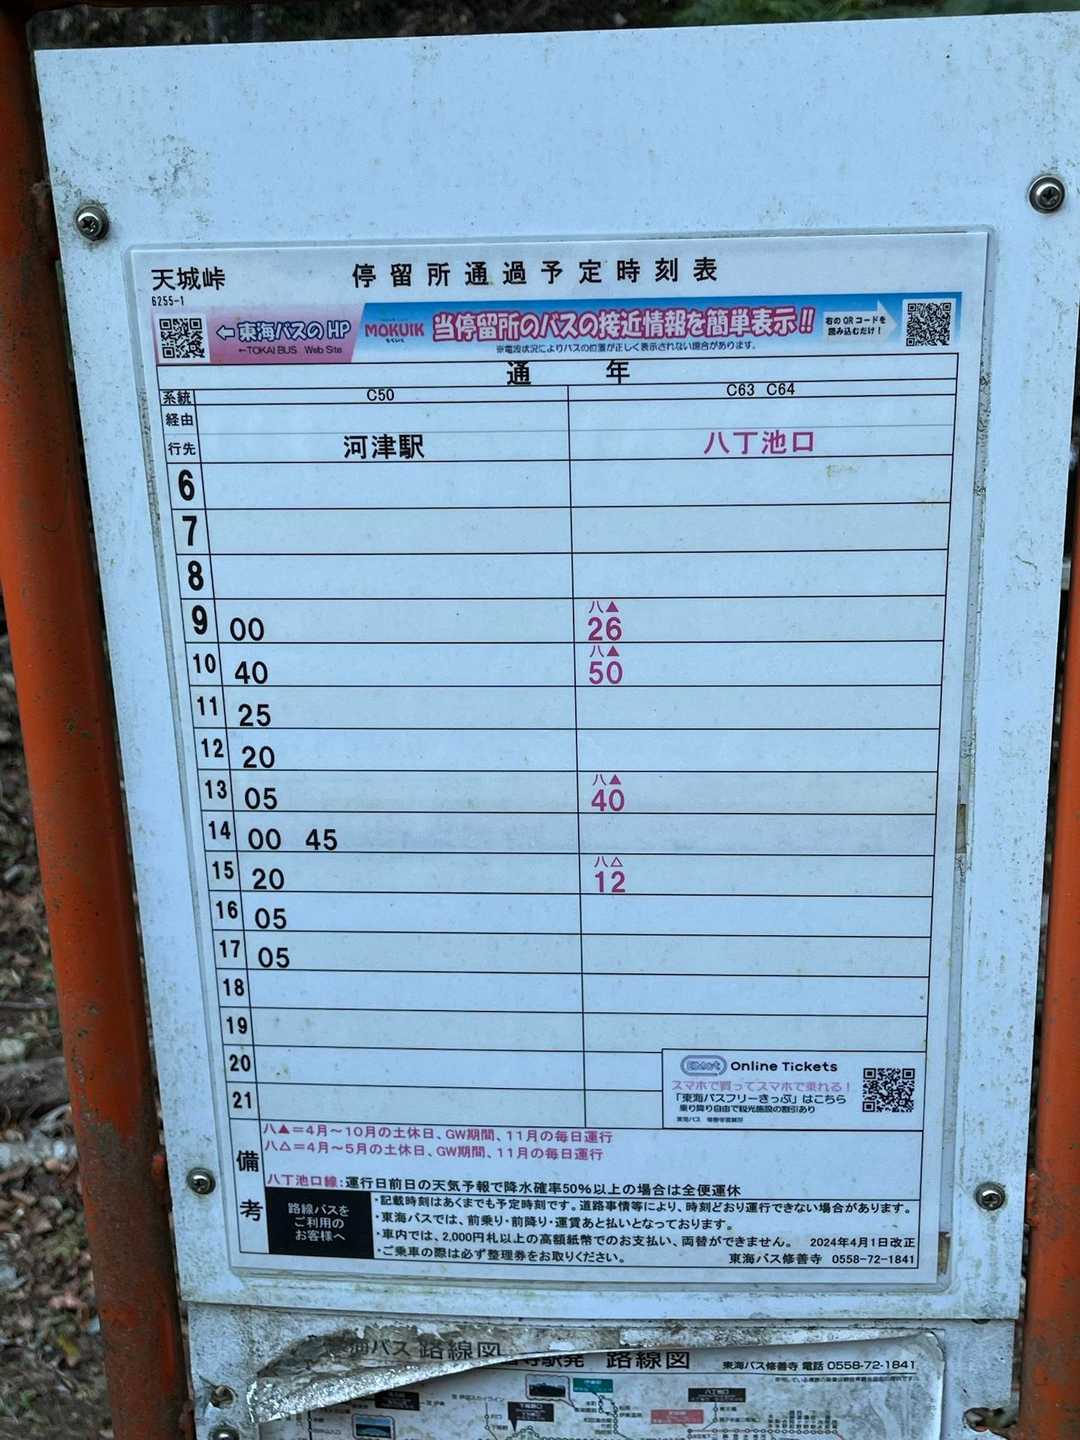 天城峠 停留所通過予定時刻表
6255-1
←東海バスのHP
←TOKAI BUS Web Site
MOKUIK
もくいく
当停留所のバスの接近情報を簡単表示!!
※電波状況によりバスの位置が正しく表示されない場合があります。
右のQRコードを
読み込むだけ!
通年
系統 C50 C63 C64
経由
行先 河津駅 八丁池口
6
7
8
9 00 八▲26
10 40 八▲50
11 25
12 20
13 05 八▲40
14 00 45
15 20 八△12
16 05
17 05
18
19
20
21
EMot Online Tickets
スマホで買ってスマホで乗れる!
「東海バスフリーきっぷ」はこちら
乗り降り自由で観光施設の割引あり
備考
八▲=4月~10月の土休日、GW期間、11月の毎日運行
八△=4月~5月の土休日、GW期間、11月の毎日運行
八丁池口線:運行日前日の天気予報で降水確率50%以上の場合は全便運休
路線バスを
ご利用の
お客様へ
・記載時刻はあくまでも予定時刻です。道路事情等により、時刻どおり運行できない場合があります。
・東海バスでは、前乗り・前降り・運賃あと払いとなっております。
・車内では、2,000円札以上の高額紙幣でのお支払い、両替ができません。 2024年4月1日改正
・ご乗車の際は必ず整理券をお取りください。 東海バス修善寺 0558-72-1841
海バス 路線図
寺駅発 路線図
東海バス修善寺 電話 0558-72-1841